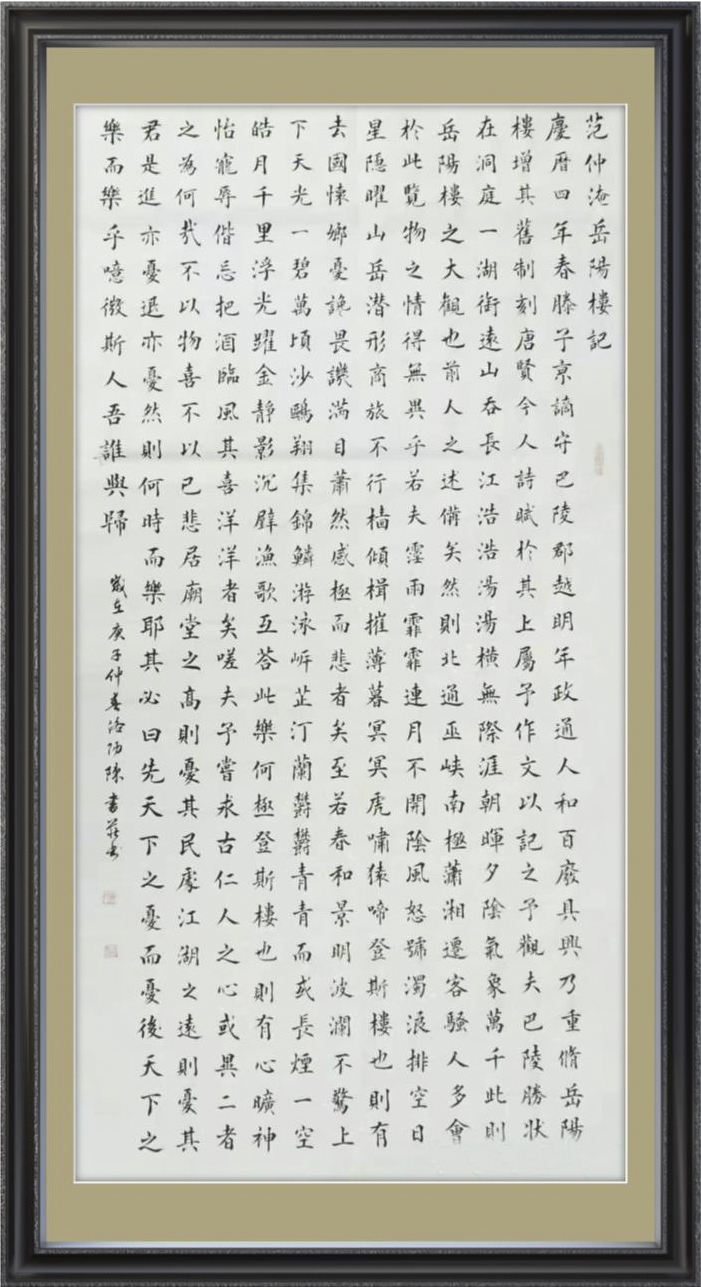 范仲淹岳陽樓記
慶曆四年春滕子京謫守巴陵郡越明年政通人和百廢具興乃重脩岳陽
樓增其舊制刻唐賢今人詩賦於其上屬予作文以記之予觀夫巴陵勝狀
在洞庭一湖銜遠山吞長江浩浩湯湯橫無際涯朝暉夕陰氣象萬千此則
岳陽樓之大觀也前人之述備矣然則北通巫峽南極瀟湘遷客騷人多會
於此覽物之情得無異乎若夫霪雨霏霏連月不開陰風怒號濁浪排空日
星隱曜山岳潛形商旅不行檣傾楫摧薄暮冥冥虎嘯猿啼登斯樓也則有
去國懷鄉憂讒畏譏滿目蕭然感極而悲者矣至若春和景明波瀾不驚上
下天光一碧萬頃沙鷗翔集錦鱗游泳岸芷汀蘭鬱鬱青青而或長煙一空
皓月千里浮光躍金靜影沉璧漁歌互答此樂何極登斯樓也則有心曠神
怡寵辱偕忘把酒臨風其喜洋洋者矣嗟夫予嘗求古仁人之心或異二者
之為何哉不以物喜不以己悲居廟堂之高則憂其民處江湖之遠則憂其
君是進亦憂退亦憂然則何時而樂耶其必曰先天下之憂而憂後天下之
樂而樂乎噫微斯人吾誰與歸
歲在庚子仲春洛陽陳書莊書